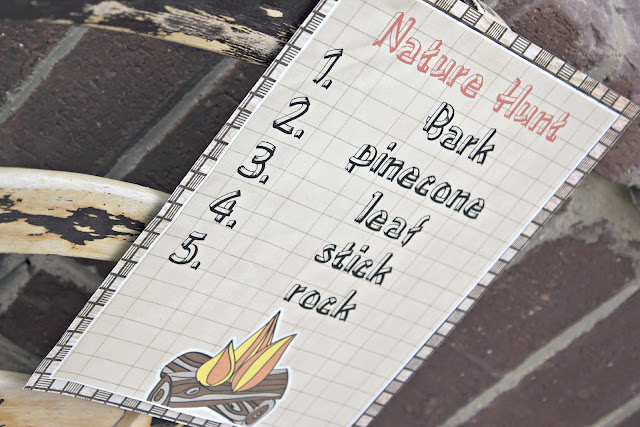 Nature Hunt
1. Bark
2. pinecone
3. leaf
4. stick
5. rock